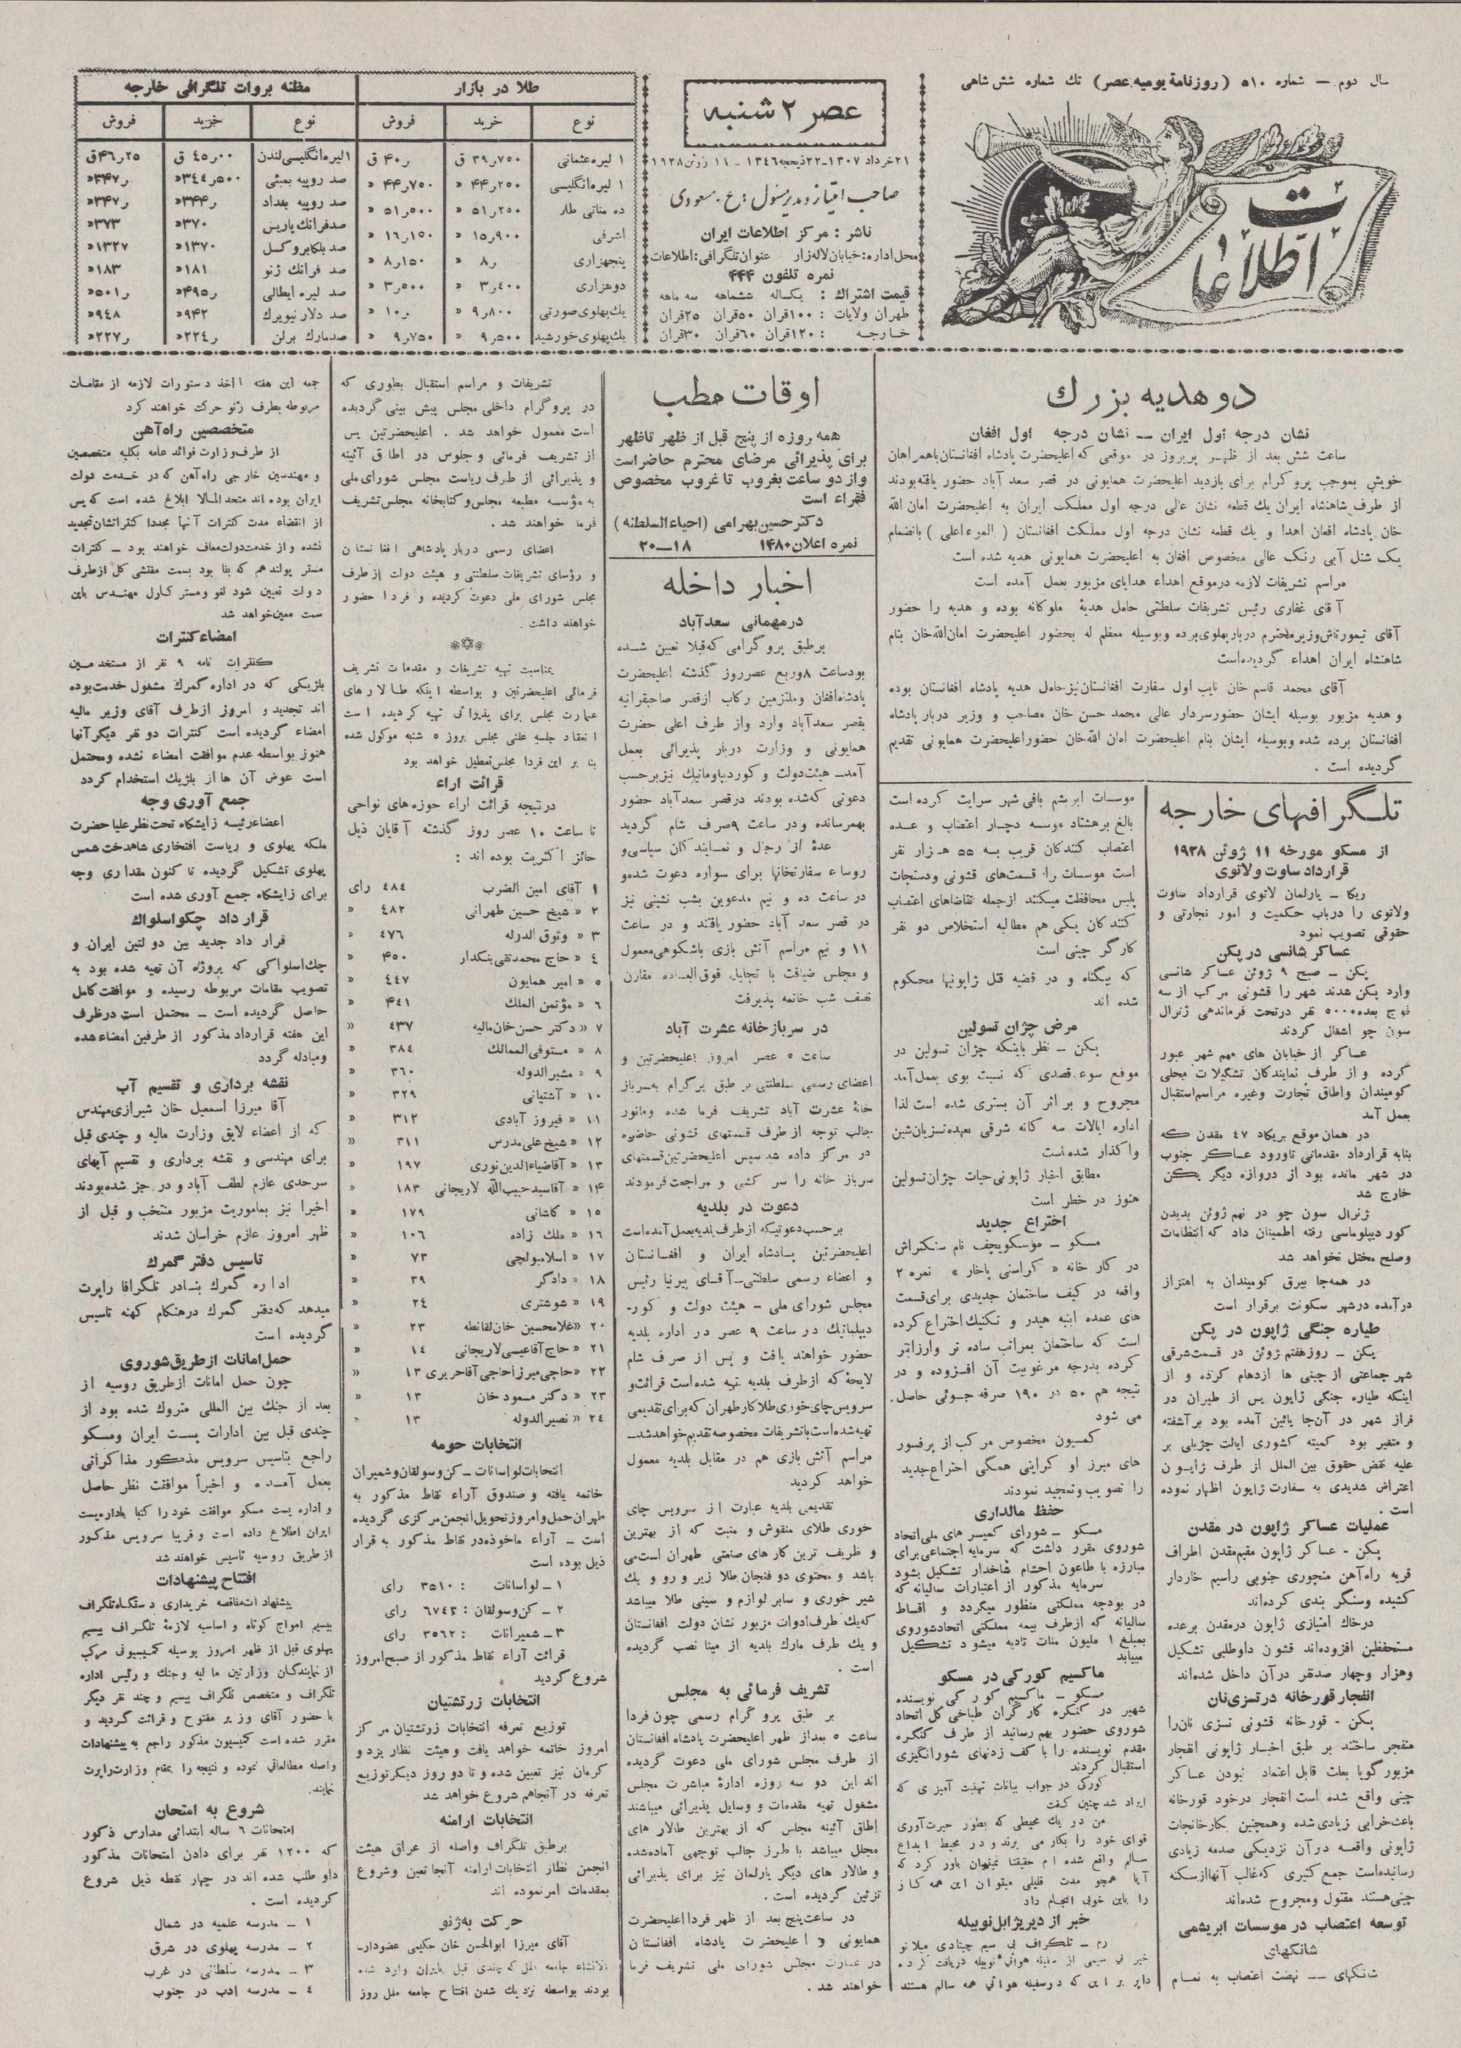 سال دوم — شماره ۵۱۰ (روزنامهٔ یومیه عصر) تك شماره شش شاهی
اطلاعات
عصر ۲ شنبه
۲۱ خرداد ۱۳۰۷ - ۲۲ ذیحجه ۱۳۴۶ - ۱۱ ژوئن ۱۹۲۸
صاحب امتیاز و مدیر مسئول : ع . مسعودی
ناشر : مرکز اطلاعات ایران
محل اداره: خیابان لاله زار عنوان تلگرافی: اطلاعات
نمره تلفون ۴۴۴
قیمت اشتراك : یکساله ششماهه سه ماهه
طهران ولایات : ۱۰۰قران ۵۰قران ۲۵قران
خارجه : ۱۲۰قران ۶۰قران ۳۰قران
طلا در بازار
نوع خرید فروش
۱ لیره عثمانی ۳۹ر۷۵۰ ق ۴۰ر ق
۱ لیره انگلیسی ۴۴ر۲۵۰ « ۴۴ر۷۵۰ «
ده مناتی طلا ۵۱ر۲۵۰ « ۵۱ر۵۰۰ «
اشرفی ۱۵ر۹۰۰ « ۱۶ر۱۵۰ «
پنجهزاری ۸ر « ۸ر۱۵۰ «
دوهزاری ۳ر۴۰۰ « ۳ر۵۰۰ «
یك پهلوی صورتی ۹ر۸۰۰ « ۱۰ر «
یك پهلوی خورشید ۹ر۵۰۰ « ۹ر۷۵۰ «
مظنه بروات تلگرافی خارجه
نوع خرید فروش
۱ لیره انگلیسی لندن ۴۵ر۰۰ ق ۴۶ر۲۵ ق
صد روپیه بمبئی ۳۴۴ر۵۰۰« ۳۴۷ر«
صد روپیه بغداد ۳۴۴ر« ۳۴۷ر«
صد فرانك پاریس ۳۷۰« ۳۷۳«
صد بلکا بروکسل ۱۳۷۰« ۱۳۲۷«
صد فرانك ژنو ۱۸۱« ۱۸۳«
صد لیره ایطالی ۴۹۵ر« ۵۰۱ر«
صد دلار نیویرك ۹۴۲« ۹۴۸«
صد مارك برلن ۲۲۴ر« ۲۲۷ر«
دو هدیه بزرك
نشان درجه اول ایران — نشان درجه اول افغان
ساعت شش بعد از ظهر پریروز در موقعی که اعلیحضرت پادشاه افغانستان باهمراهان
خویش بموجب پروگرام برای بازدید اعلیحضرت همایونی در قصر سعد آباد حضور یافته بودند
از طرف شاهنشاه ایران یك قطعه نشان عالی درجه اول مملکت ایران به اعلیحضرت امان الله
خان پادشاه افغان اهدا و یك قطعه نشان درجه اول مملکت افغانستان ( المرء اعلی ) بانضمام
یك شنل آبی رنك عالی مخصوص افغان به اعلیحضرت همایونی هدیه شده است
مراسم تشریفات لازمه درموقع اهداء هدایای مزبور بعمل آمده است
آقای غفاری رئیس تشریفات سلطنتی حامل هدیهٔ ملوکانه بوده و هدیه را حضور
آقای تیمورتاش وزیر محترم دربار پهلوی برده و بوسیله معظم له بحضور اعلیحضرت امان الله خان بنام
شاهنشاه ایران اهداء گردیده است
آقای محمد قاسم خان نایب اول سفارت افغانستان نیز حامل هدیه پادشاه افغانستان بوده
و هدیه مزبور بوسیله ایشان حضور سردار عالی محمد حسن خان مصاحب و وزیر دربار پادشاه
افغانستان برده شده و بوسیله ایشان بنام اعلیحضرت امان الله خان حضور اعلیحضرت همایونی تقدیم
گردیده است .
تلگرافهای خارجه
از مسکو مورخه ۱۱ ژوئن ۱۹۲۸
قرارداد ساوت ولاتوی
ریکا – پارلمان لاتوی قرارداد ساوت
ولاتوی را درباب حکمیت و امور تجارتی و
حقوقی تصویب نمود
عساکر شانسی در پکن
پکن – صبح ۹ ژوئن عساکر شانسی
وارد پکن شدند شهر را قشونی مرکب از سه
فوج بعده ۵۰۰۰ نفر درتحت فرماندهی ژنرال
سون چو اشغال کردند
عساکر از خیابان های مهم شهر عبور
کرده و از طرف نمایندگان تشکیلات محلی
کومیندان واطاق تجارت وغیره مراسم استقبال
بعمل آمد
در همان موقع بریکاد ۴۷ مقدن که
بنابه قرارداد مقدماتی تاورود عساکر جنوب
در شهر مانده بود از دروازه دیگر پکن
خارج شد
ژنرال سون چو در نهم ژوئن بدیدن
کور دیپلوماسی رفته اطمینان داد که انتظامات
وصلح مختل نخواهد شد
در همه جا بیرق کومیندان به اهتزاز
درآمده درشهر سکونت برقرار است
طیاره جنگی ژاپون در پکن
پکن – روز هفتم ژوئن در قسمت شرقی
شهر جماعتی از چینی ها ازدهام کرده و از
اینکه طیاره جنگی ژاپون پس از طیران در
فراز شهر در آن جا پائین آمده بود برآشفته
و متغیر بود کمیته کشوری ایالت چژیلی بر
علیه نقض حقوق بین الملل از طرف ژاپون
اعتراض شدیدی به سفارت ژاپون اظهار نموده
است .
عملیات عساکر ژاپون در مقدن
پکن - عساکر ژاپون مقیم مقدن اطراف
قریه راه آهن منچوری جنوبی راسیم خاردار
کشیده وسنگر بندی کرده اند
درخاك امتیازی ژاپون درمقدن برعده
مستحفظین افزوده اند قشون داوطلبی تشکیل
وهزار وچهار صدنفر درآن داخل شده اند
انفجار قورخانه در تسزی نان
پکن - قورخانه قشونی تسزی نان را
منفجر ساختند بر طبق اخبار ژاپونی انفجار
مزبور گویا بعلت قابل اعتماد نبودن عساکر
چینی واقع شده است انفجار درخود قورخانه
باعث خرابی زیادی شده وهمچنین بکارخانجات
ژاپونی واقعه درآن نزدیکی صدمه زیادی
رسانیده است جمع کثیری که غالب آنها از سکنه
چینی هستند مقتول ومجروح شده اند
توسعه اعتصاب در موسسات ابریشمی
شانگهای
شانگهای — نهضت اعتصاب به تمام
موسسات ابریشم بافی شهر سرایت کرده است
بالغ برهشتاد موسسه دچار اعتصاب و عده
اعتصاب کنندگان قریب به ۵۵ هزار نفر
است موسسات را قسمت های قشونی ودستجات
پلیس محافظت میکنند ازجمله تقاضاهای اعتصاب
کنندگان یکی هم مطالبه استخلاص دو نفر
کارگر چینی است
که بیگناه و در قضیه قتل ژاپونیها محکوم
شده اند
مرض چژان تسولین
پکن – نظر باینکه چژان تسولین در
موقع سوء قصدی که نسبت بوی بعمل آمد
مجروح و براثر آن بستری شده است لذا
اداره ایالات سه گانه شرقی بعهده تسزیان شین
واگذار شده است
مطابق اخبار ژاپونی حیات چژان تسولین
هنوز در خطر است
اختراع جدید
مسکو – موسکویچف نام سنکتراش
در کارخانه « کراسنی پاخار» نمره ۲
واقعه در کیف ساختمان جدیدی برای قسمت
های عمده ابنیه هیدر و تکنیك اختراع کرده
است که ساختمان بمراتب ساده تر وارزانتر
کرده بدرجه مرغوبیت آن افزوده و در
نتیجه هم ۵۰ در ۱۹۰ صرفه جوئی حاصل
می شود
کمسیون مخصوص مرکب از پرفسور
های مبرز او کراینی همگی اختراع جدید
را تصویب وتمجید نمودند
حفظ مالداری
مسکو – شورای کمیسر های ملی اتحاد
شوروی مقرر داشت که سرمایه اجتماعی برای
مبارزه با طاعون احشام شاخدار تشکیل بشود
سرمایه مذکور از اعتبارات سالیانه که
در بودجه مملکتی منظور میگردد و اقساط
سالیانه که ازطرف بیمه مملکتی اتحادشوروی
بمبلغ ۱ ملیون منات تادیه میشود تشکیل
مییابد
ماکسیم کورکی در مسکو
مسکو – ماکسیم کورکی نویسنده
شهیر در کنگره کارگران طباخی کل اتحاد
شوروی حضور بهم رسانید از طرف کنگره
مقدم نویسنده را با کف زدنهای شورانگیزی
استقبال کردند
کورکی در جواب بیانات تهنیت آمیزی که
ایراد شد چنین گفت
من در یك محیطی که بطور حیرت آوری
قوای خود را بکار می برند و در محیط ابداع
سالم واقع شده ام حقیقتا نمیتوان باور کرد که
آیا همچو مدت قلیلی میتوان این همه کار
را باین خوبی انجام داد
خبر از دیریژابل نوبیله
رم – تلگراف بی سیم چیتادی میلانو
خبر بی سیمی از سفینه هوائی نوبیله دریافت کرده
دایر بر این که دو سفینه هوائی همه سالم هستند
اوقات مطب
همه روزه از پنج قبل از ظهر تا ظهر
برای پذیرائی مرضای محترم حاضر است
و از دو ساعت بغروب تا غروب مخصوص
فقراء است
دکتر حسین بهرامی (احیاء السلطنه )
نمره اعلان ۱۴۸۰ ۱۸—۲۰
اخبار داخله
در مهمانی سعد آباد
برطبق پروگرامی که قبلا تعیین شده
بود ساعت ۸ وربع عصر روز گذشته اعلیحضرت
پادشاه افغان وملتزمین رکاب از قصر صاحبقرانیه
بقصر سعدآباد وارد واز طرف اعلی حضرت
همایونی و وزارت دربار پذیرائی بعمل
آمد – هیئت دولت و کوردیپلوماتیك نیز برحسب
دعوتی که شده بودند درقصر سعدآباد حضور
بهمرسانده ودر ساعت ۹ صرف شام گردید
عدهٔ از رجال و نمایندگان سیاسی و
روساء سفارتخانها برای سواره دعوت شده و
در ساعت ده و نیم مدعوین بشب نشینی نیز
در قصر سعد آباد حضور یافتند و در ساعت
۱۱ و نیم مراسم آتش بازی باشکوهی معمول
و مجلس ضیافت با تجلیل فوق العاده مقارن
نصف شب خاتمه پذیرفت
در سربازخانه عشرت آباد
ساعت ۵ عصر امروز اعلیحضرتین و
اعضای رسمی سلطنتی بر طبق پرگرام به سرباز
خانهٔ عشرت آباد تشریف فرما شده ومانور
جالب توجه از طرف قسمتهای قشونی حاضره
در مرکز داده شد سپس اعلیحضرتین قسمتهای
سرباز خانه را سر کشی و مراجعت فرمودند
دعوت در بلدیه
برحسب دعوتیکه ازطرف بلدیه بعمل آمده است
اعلیحضرتین پادشاه ایران و افغانستان
و اعضاء رسمی سلطنتی – آقای پیرنیا رئیس
مجلس شورای ملی – هیئت دولت و کور-
دیپلماتیك در ساعت ۹ عصر در اداره بلدیه
حضور خواهند یافت و پس از صرف شام
لایحهٔ که از طرف بلدیه تهیه شده است قرائت و
سرویس چای خوری طلا کار طهران که برای تقدیمی
تهیه شده است با تشریفات مخصوصه تقدیم خواهد شد –
مراسم آتش بازی هم در مقابل بلدیه معمول
خواهد گردید
تقدیمی بلدیه عبارت از سرویس چای
خوری طلای منقوش و منبت که از بهترین
و ظریف ترین کار های صنعتی طهران است می
باشد و محتوی دو فنجان طلا زیر و رو و یك
شیر خوری و سایر لوازم و سینی طلا میباشد
که یك طرف ادوات مزبور نشان دولت افغانستان
و یك طرف مارك بلدیه از مینا نصب گردیده
است .
تشریف فرمائی به مجلس
بر طبق پروگرام رسمی چون فردا
ساعت ۵ بعد از ظهر اعلیحضرت پادشاه افغانستان
از طرف مجلس شورای ملی دعوت گردیده
اند این دو سه روزه ادارهٔ مباشرت مجلس
مشغول تهیه مقدمات و وسایل پذیرائی میباشند
اطاق آئینه مجلس که از بهترین طالار های
مجلل میباشد با طرز جالب توجهی آماده شده
و طالار های دیگر پارلمان نیز برای پذیرائی
تزئین گردیده است .
در ساعت پنج بعد از ظهر فردا اعلیحضرت
همایونی و اعلیحضرت پادشاه افغانستان
در عمارت مجلس شورای ملی تشریف فرما
خواهند شد .
تشریفات و مراسم استقبال بطوری که
در پروگرام داخلی مجلس پیش بینی گردیده
است معمول خواهد شد . اعلیحضرتین پس
از تشریف فرمائی و جلوس در اطاق آئینه
و پذیرائی از طرف ریاست مجلس شورای ملی
به مؤسسه مطبعه مجلس و کتابخانه مجلس تشریف
فرما خواهند شد .
اعضای رسمی دربار پادشاهی افغانستان
و رؤسای تشریفات سلطنتی و هیئت دولت از طرف
مجلس شورای ملی دعوت گردیده و فردا حضور
خواهند داشت .
بمناسبت تهیه تشریفات و مقدمات تشریف
فرمائی اعلیحضرتین و بواسطه اینکه طالار های
عمارت مجلس برای پذیرائی تهیه گردیده است
انعقاد جلسه علنی مجلس بروز ۵ شنبه موکول شده
بنا بر این فردا مجلس تعطیل خواهد بود
قرائت اراء
درنتیجه قرائت اراء حوزه های نواحی
تا ساعت ۱۰ عصر روز گذشته آقایان ذیل
حائز اکثریت بوده اند :
۱ آقای امین الضرب ۴۸۴ رای
۲ « شیخ حسین طهرانی ۴۸۲ «
۳ « وثوق الدوله ۴۷۶ «
۴ « حاج محمدتقی بنکدار ۴۵۰ «
۵ « امیر همایون ۴۴۷ «
۶ « مؤتمن الملك ۴۴۱ «
۷ « دکتر حسن خان مالیه ۴۳۷ «
۸ « مستوفی الممالك ۳۸۴ «
۹ « مشیرالدوله ۳۶۰ «
۱۰ « آشتیانی ۳۲۹ «
۱۱ « فیروز آبادی ۳۱۲ «
۱۲ « شیخ علی مدرس ۳۱۱ «
۱۳ « آقاضیاءالدین نوری ۱۹۷ «
۱۴ « آقاسید حبیب الله لاریجانی ۱۸۳ «
۱۵ « کاشانی ۱۷۹ «
۱۶ « ملك زاده ۱۰۶ «
۱۷ « اسلامبولچی ۷۳ «
۱۸ « دادگر ۳۹ «
۱۹ « شوشتری ۲۴ «
۲۰ « غلامحسین خان لقانطه ۲۳ «
۲۱ « حاج آقا عیسی لاریجانی ۱۴ «
۲۲ « حاجی میرزا حاجی آقا حریری ۱۳ «
۲۳ « دکتر مسعود خان ۱۳ «
۲۴ « نصیرالدوله ۱۳ «
انتخابات حومه
انتخابات لواسانات – کن و سولقان و شمیران
خاتمه یافته و صندوق آراء نقاط مذکور به
طهران حمل و امروز تحویل انجمن مرکزی گردیده
است – آراء ماخوذه در نقاط مذکور به قرار
ذیل بوده است
۱ – لواسانات : ۳۵۱۰ رای
۲ – کن وسولقان : ۶۷۴۳ رای
۳ – شمیرانات : ۳۵۶۲ رای
قرائت آراء نقاط مذکور از صبح امروز
شروع گردید
انتخابات زرتشتیان
توزیع تعرفه انتخابات زرتشتیان مرکز
امروز خاتمه خواهد یافت وهیئت نظار یزد و
کرمان نیز تعیین شده و تا دو روز دیگر توزیع
تعرفه در آنجاهم شروع خواهد شد
انتخابات ارامنه
برطبق تلگراف واصله از عراق هیئت
انجمن نظار انتخابات ارامنه آنجا تعین وشروع
بمقدمات امر نموده اند
حرکت به ژنو
آقای میرزا ابوالحسن خان حکیمی عضو دار-
الانشاء جامعه ملل که چندی قبل بایران وارد شده
بودند بواسطه نزدیك شدن افتتاح جامعه ملل روز
جمعه این هفته اخذ دستورات لازمه از مقامات
مربوطه بطرف ژنو حرکت خواهند کرد
متخصصین راه آهن
از طرف وزارت فوائد عامه بکلیه متخصصین
و مهندسین خارجی راه آهن که در خدمت دولت
ایران بوده اند متحدالمالا ابلاغ شده است که پس
از انقضاء مدت کنترات آنها مجددا کنتراتشان تجدید
نشده و از خدمت دولت معاف خواهند بود – کنترات
مستر پولند هم که بنا بود بسمت مفتشی کل از طرف
دولت تعیین شود لغو ومستر کارول مهندس باین
سمت معین خواهد شد
امضاء کنترات
کنترات نامه ۹ نفر از مستخدمین
بلژیکی که در اداره گمرك مشغول خدمت بوده
اند تجدید و امروز از طرف آقای وزیر مالیه
امضاء گردیده است کنترات دو نفر دیگر آنها
هنوز بواسطه عدم موافقت امضاء نشده ومحتمل
است عوض آن ها از بلژیك استخدام گردد
جمع آوری وجه
اعضاء رئیسه زایشگاه تحت نظر علیا حضرت
ملکه پهلوی و ریاست افتخاری شاهدخت شمس
پهلوی تشکیل گردیده تا کنون مقداری وجه
برای زایشگاه جمع آوری شده است
قرار داد چکواسلواك
قرار داد جدید بین دولتین ایران و
چك اسلواکی که پروژه آن تهیه شده بود به
تصویب مقامات مربوطه رسیده و موافقت کامل
حاصل گردیده است – محتمل است درظرف
این هفته قرارداد مذکور از طرفین امضاء شده
ومبادله گردد
نقشه برداری و تقسیم آب
آقا میرزا اسمعیل خان شیرازی مهندس
که از اعضاء لایق وزارت مالیه و چندی قبل
برای مهندسی و نقشه برداری و تقسیم آبهای
سرحدی عازم لطف آباد و در جز شده بودند
اخیرا نیز بماموریت مزبور منتخب و قبل از
ظهر امروز عازم خراسان شدند
تاسیس دفتر گمرك
اداره گمرك بنادر تلگرافا راپرت
میدهد که دفتر گمرك درهنگام کهنه تاسیس
گردیده است
حمل امانات از طریق شوروی
چون حمل امانات از طریق روسیه از
بعد از جنك بین المللی متروك شده بود از
چندی قبل بین ادارات پست ایران ومسکو
راجع بتاسیس سرویس مذکور مذاکراتی
بعمل آمده و اخیراً موافقت نظر حاصل
و اداره پست مسکو موافقت خود را کتبا باداره پست
ایران اطلاع داده است و قریبا سرویس مذکور
از طریق روسیه تاسیس خواهند شد
افتتاح پیشنهادات
پیشنهادات مناقصه خریداری دستگاه تلگراف
بیسیم امواج کوتاه و اساسیه لازمهٔ تلگراف بیسیم
پهلوی قبل از ظهر امروز بوسیله کمیسیونی مرکب
از نمایندگان وزارتین مالیه وجنك و رئیس اداره
تلگراف و متخصص تلگراف بیسیم و چند نفر دیگر
با حضور آقای وزیر مفتوح و قرائت گردید و
مقرر شده است کمیسیون مذکور راجع به پیشنهادات
واصله مطالعاتی نموده و نتیجه را بمقام وزارت راپرت
نمایند.
شروع به امتحان
امتحانات ۶ ساله ابتدائی مدارس ذکور
که ۱۲۰۰ نفر برای دادن امتحانات مذکور
داو طلب شده اند در چهار نقطه ذیل شروع
گردیده است .
۱ – مدرسه علمیه در شمال
۲ – مدرسه پهلوی در شرق
۳ – مدرسه سلطانی در غرب
۴ – مدرسه ادب در جنوب